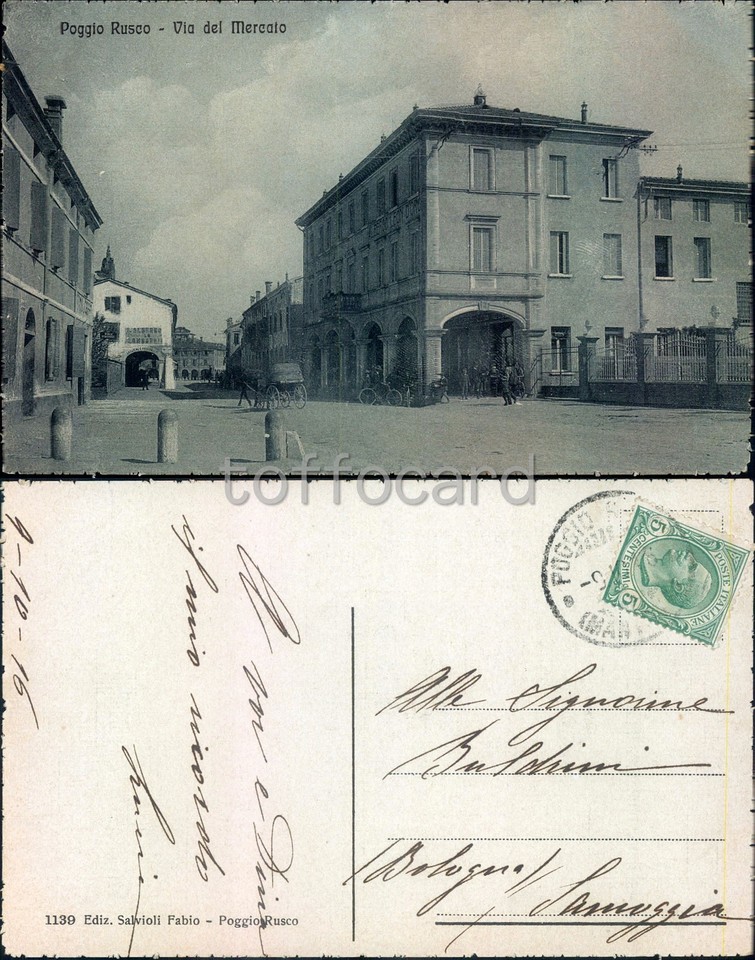 Poggio Rusco - Via del Mercato
toffocard
POGGIO
(MAN
POSTE ITALIANE
CENTESIMI
5
5
Alle Signorine
Baldrini
(Bologna) Samoggia
A voi e Dina
il mio ricordo
9-10-16
1139 Ediz. Salvioli Fabio - Poggio Rusco